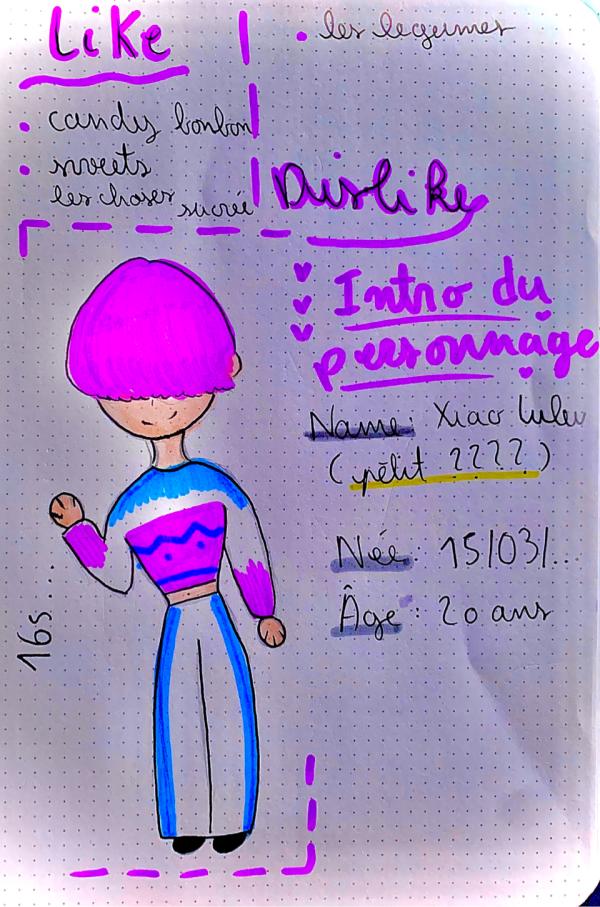 Like
• candy bonbon
• sweets
les choses sucrée
• les legumes
Dislike
Intro du
personnage
Name: Xiao Lulu
(pétit ????)
Née: 15/03/...
Âge: 20 ans
16s...